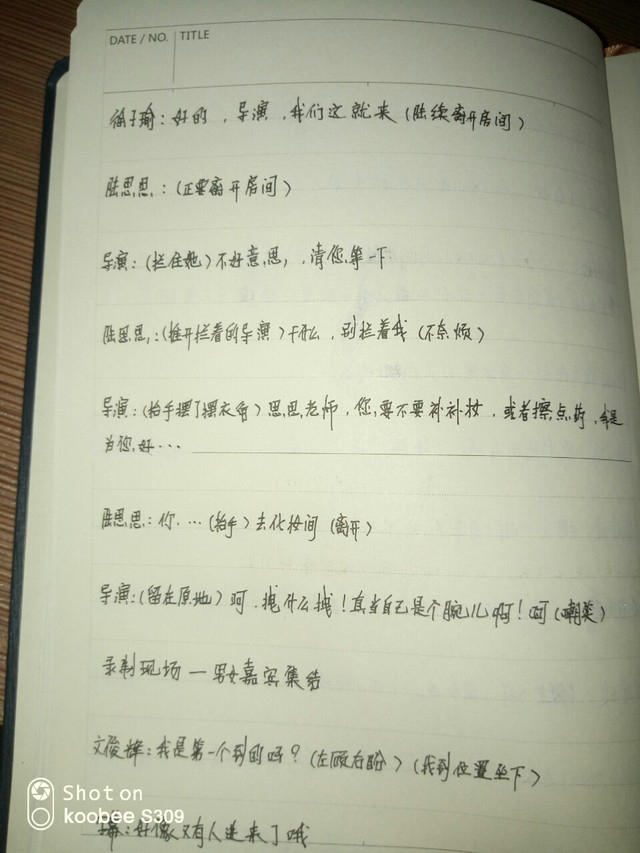 DATE / NO. TITLE
徐子瑜：好的，导演，我们这就来（陆续离开房间）
陆思思：（正要离开房间）
导演：（拦住她）不好意思，请您等一下
陆思思：（推开拦着的导演）干什么，别拦着我（不奈烦）
导演：（抬手摆了摆衣角）思思老师，您要不要补补妆，或者擦点药，我是
为你好…
陆思思：你…（抬手）去化妆间（离开）
导演：（留在原地）呵，拽什么拽！真当自己是个腕儿啊！呵（嘲笑）
录制现场 — 男女嘉宾集结
文俊辉：我是第一个到的吗？（左顾右盼）（找到位置坐下）
：好像又有人进来了哦
Shot on
koobee S309